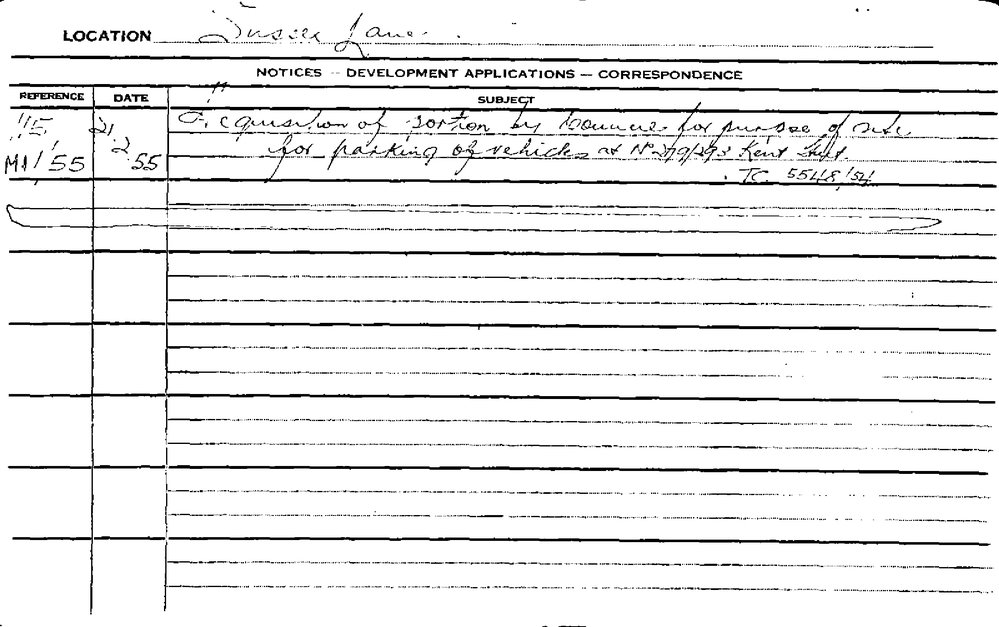 LOCATION Sussex Lane.
NOTICES - DEVELOPMENT APPLICATIONS - CORRESPONDENCE
REFERENCE DATE SUBJECT
21 Acquisition of portion by Council for purpose of site
2 for parking of vehicles at Nº 279/293 Kent Street.
M1/55 55
TC 5548/54